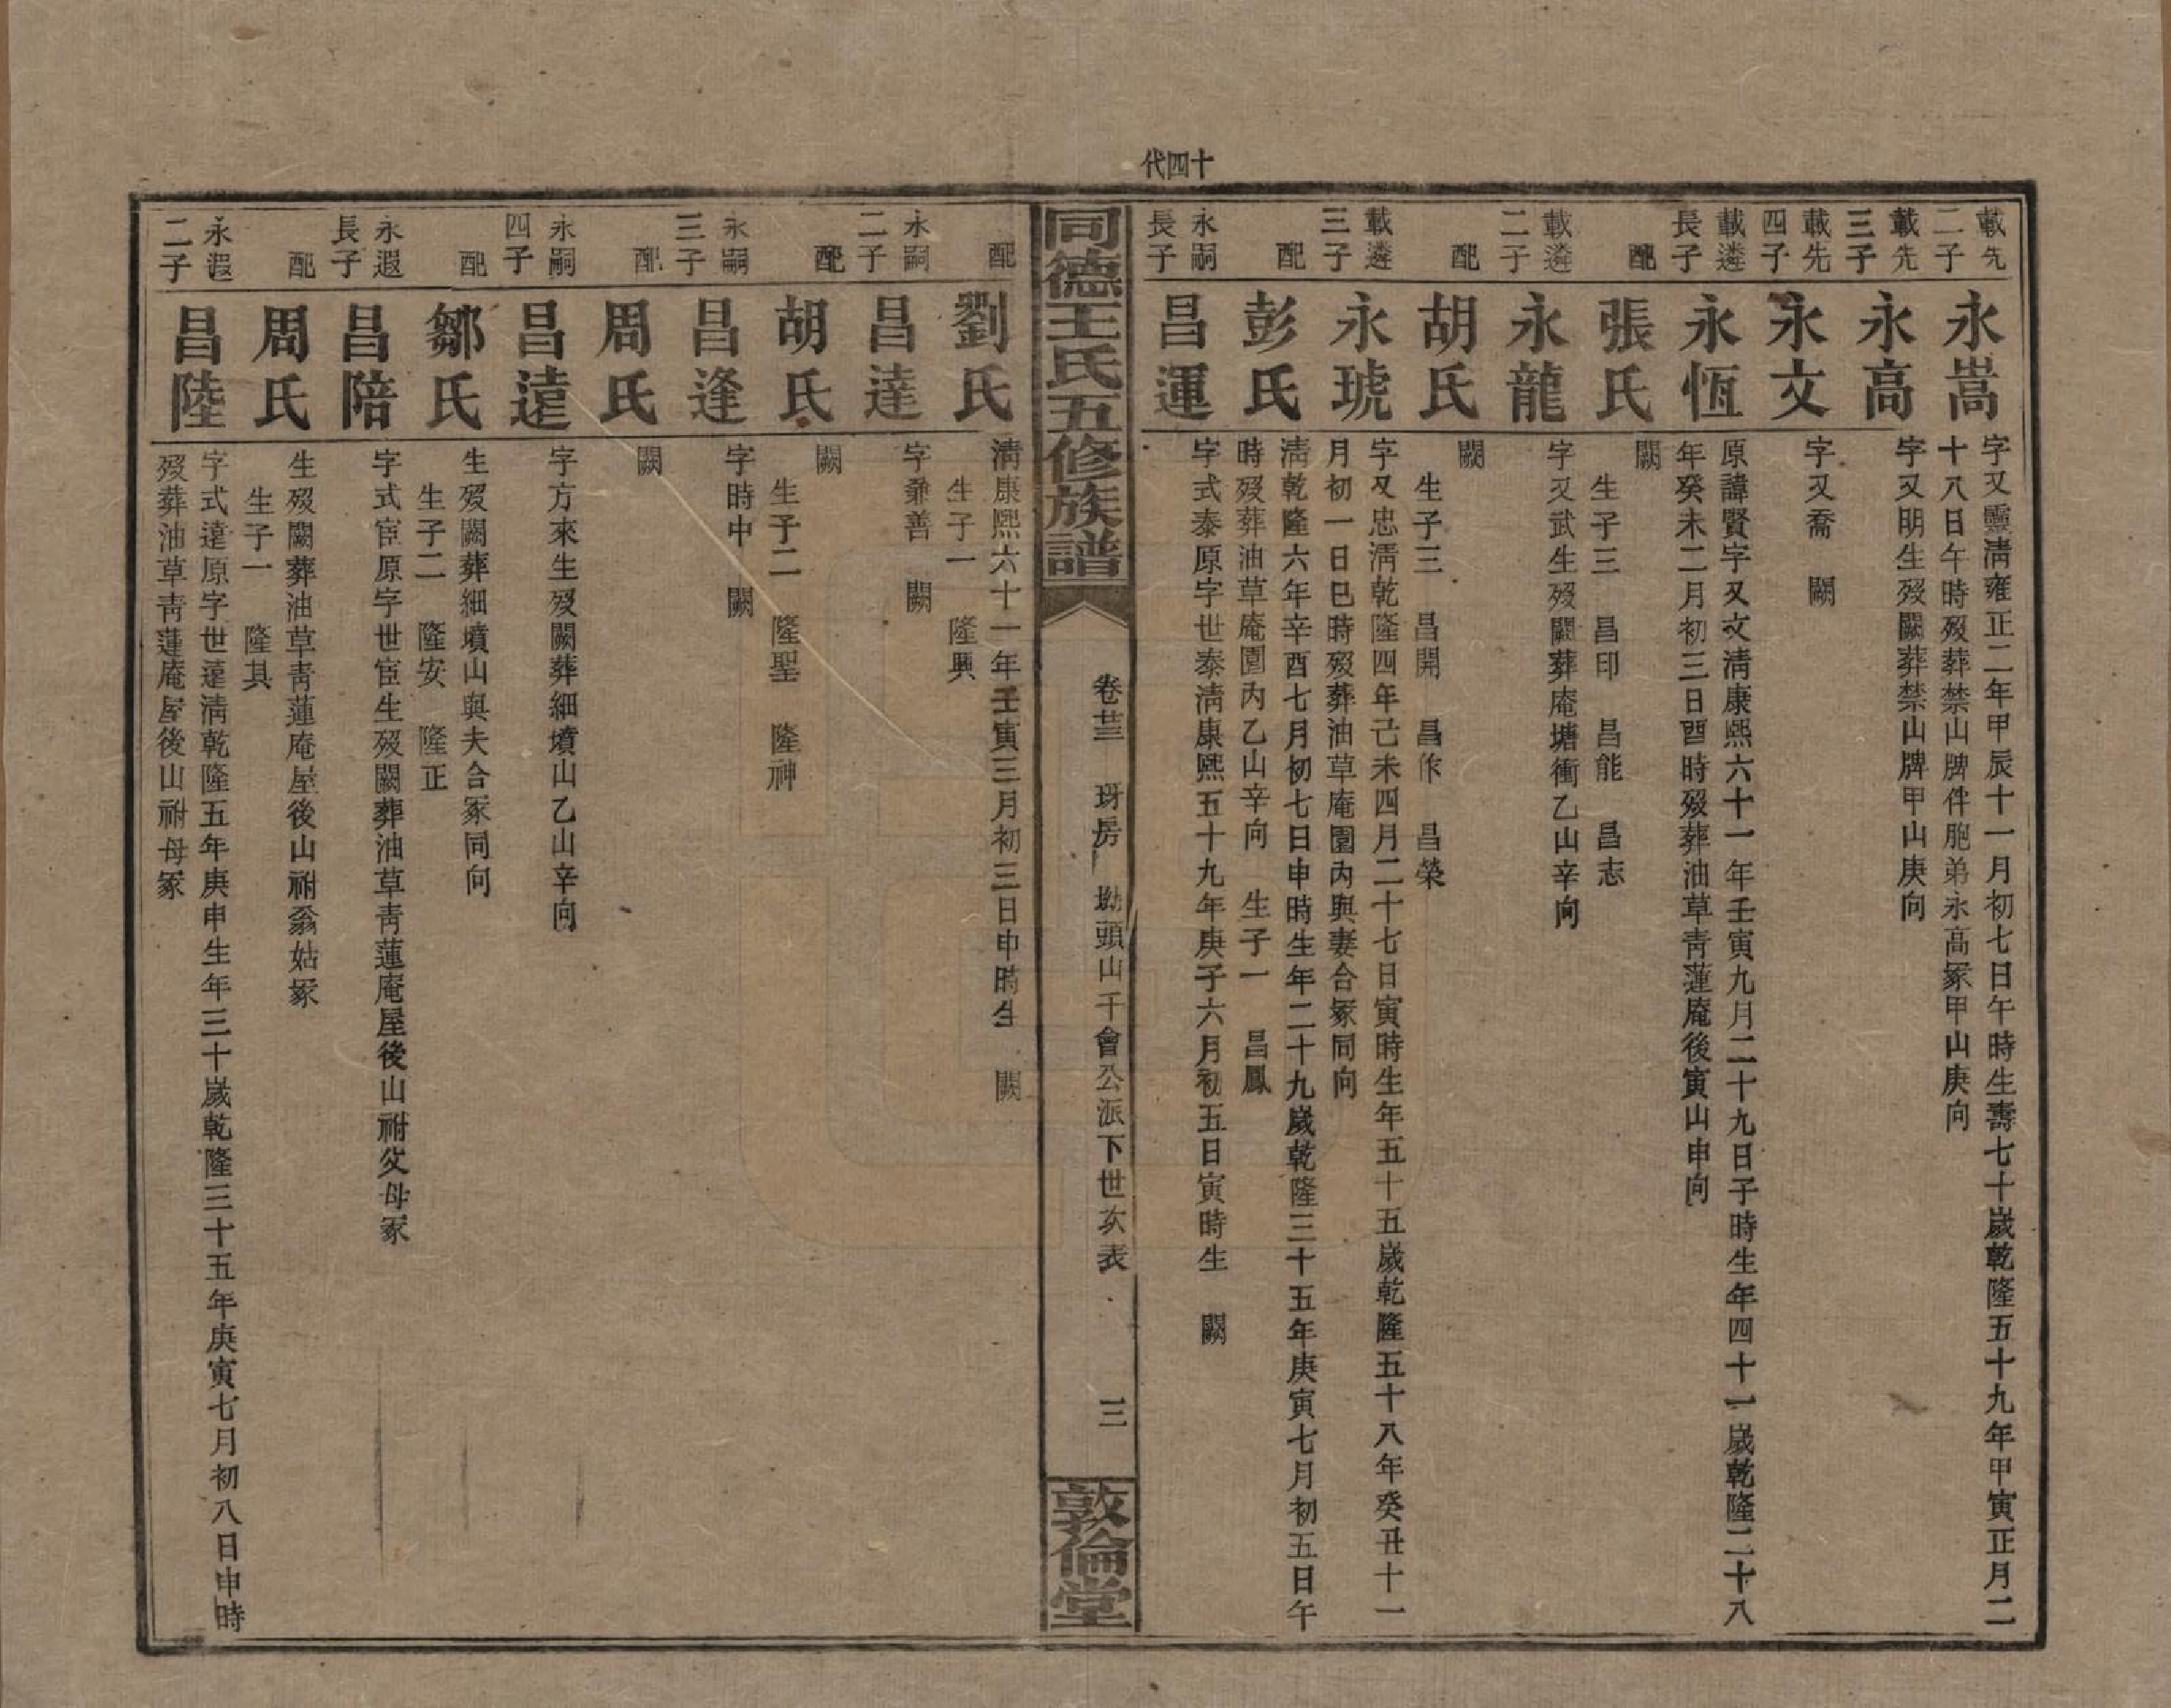 十四代
載先二子
永嵩
字又靈清雍正二年甲辰十一月初七日午時生壽七十歲乾隆五十九年甲寅正月二
十八日午時歿葬禁山牌伴胞弟永高冢甲山庚向
載先三子
永高
字又明生歿闕葬禁山牌甲山庚向
載先四子
永文
字又喬 闕
載遴長子
永恆
原諱賢字又文清康熙六十一年壬寅九月二十九日子時生年四十一歲乾隆二十八
年癸未二月初三日酉時歿葬油草青蓮庵後寅山申向
配
張氏
闕
生子三 昌印 昌能 昌志
載遴二子
永龍
字又武生歿闕葬庵塘衝乙山辛向
配
胡氏
闕
生子三 昌開 昌作 昌榮
載遴三子
永琥
字又忠清乾隆四年己未四月二十七日寅時生年五十五歲乾隆五十八年癸丑十一
月初一日巳時歿葬油草庵園內與妻合冢同向
配
彭氏
清乾隆六年辛酉七月初七日申時生年二十九歲乾隆三十五年庚寅七月初五日午
時歿葬油草庵園內乙山辛向 生子一 昌鳳
永嗣長子
昌運
字式泰原字世泰清康熙五十九年庚子六月初五日寅時生 闕
同德王氏五修族譜
卷廿三 玡房 坳頭山千會公派下世次表
三
敦倫堂
配
劉氏
清康熙六十一年壬寅三月初三日申時生 闕
生子一 隆興
永嗣二子
昌達
字兼善 闕
配
胡氏
闕
生子二 隆聖 隆神
永嗣三子
昌逢
字時中 闕
配
周氏
闕
永嗣四子
昌遠
字方來生歿闕葬細墳山乙山辛向
配
鄒氏
生歿闕葬細墳山與夫合冢同向
生子二 隆安 隆正
永遐長子
昌陪
字式宦原字世宦生歿闕葬油草青蓮庵屋後山祔父母冢
配
周氏
生歿闕葬油草青蓮庵屋後山祔翁姑冢
生子一 隆其
永遐二子
昌陸
字式遠原字世遠清乾隆五年庚申生年三十歲乾隆三十五年庚寅七月初八日申時
歿葬油草青蓮庵屋後山祔母冢